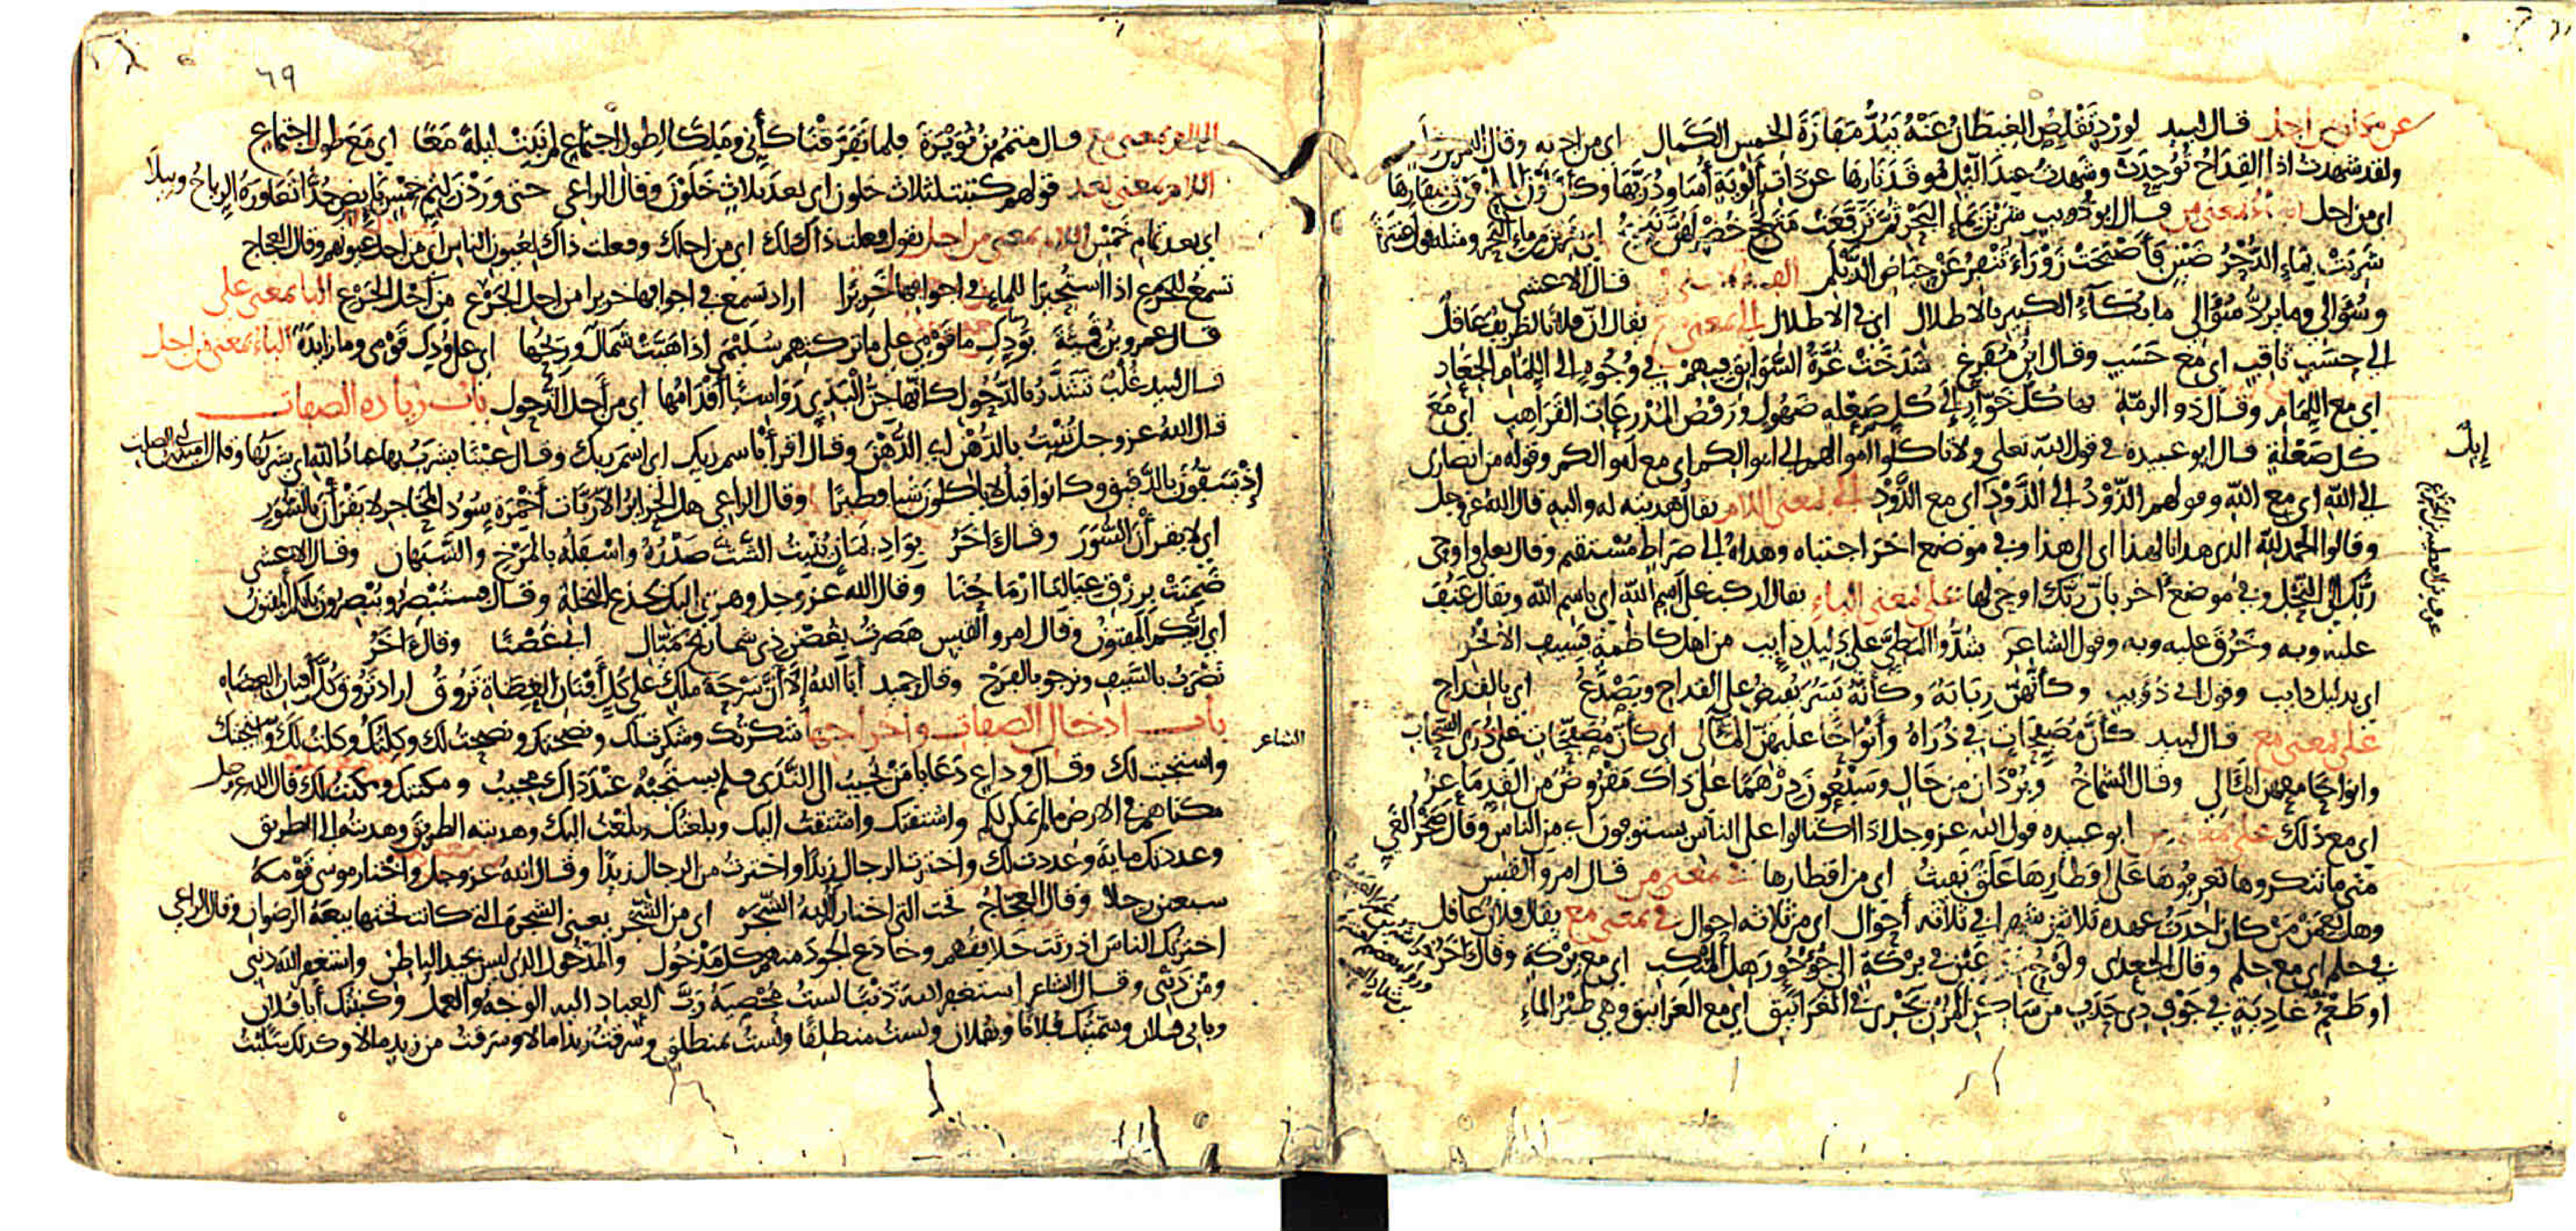 عن مكان من اجل قال لبيد لورد تقلص الغيطان عنه يبذ مفازة الخمس الكمال اى من اجله وقال النمر بن تولب
ولقد شهدت اذا القداح توحدت وشهدت عند الليل موقد نارها عن ذات اولية اساود ربها وكأن لون الملح فوق شفارها
اى من اجل الباء بمعنى من قال ابو ذويب شربن بماء البحر ثم ترفعت متى لجج خضر لهن نئيج اى شربن من ماء البحر ومثله قول عنترة
شربت بماء الدحرضين فأصبحت زوراء تنفر عن حياض الديلم قال الاعشى
وسؤالى وما يرد سؤالى ما بكاء الكبير بالاطلال اى فى الاطلال الى بمعنى مع يقال ان فلانا لظريف عاقل
الى حسب ثاقب اى مع حسب وقال ابن مفرغ شدخت غرة السوابق فيهم فى وجوه الى اللمام الجعاد
اى مع اللمام وقال ذو الرمة بها كل خوار الى كل صعلة ضهول ورفض المذرعات القراهب اى مع
كل صعلة قال ابو عبيدة فى قول الله تعلى ولا تاكلوا اموالهم الى اموالكم اى مع اموالكم وقوله من انصارى
الى الله اى مع الله وقولهم الذود الى الذود اى مع الذود الى بمعنى اللام يقال هديته له واليه قال الله عز وجل
وقالوا الحمد لله الذى هدانا لهذا اى الى هذا وفى موضع اخر اجتباه وهداه الى صراط مستقيم وقال تعلى واوحى
ربك الى النحل وفى موضع اخر بان ربك اوحى لها على بمعنى الباء يقال اركب على اسم الله اى باسم الله ويقال عنف
عليه وبه وخرق عليه وبه وقول الشاعر شدوا المطى على دليل دايب من اهل كاظمة بسيف الابحر
اى بدليل دايب وقول ابى ذؤيب وكأنهن ربابة وكأنه يسر يفيض على القداح ويصدع اى بالقداح
على بمعنى مع قال لبيد كأن مصفحات فى ذراه وأنواحا عليهن المآلى اى كأن مصفحات على ذرى السحاب
وانواحا معهن المآلى وقال الشماخ وبردان من خال وسبعون درهما على ذاك مقروض من القد ماعز
اى مع ذلك على بمعنى من ابو عبيده قول الله عز وجل اذا اكتالوا على الناس يستوفون اى من الناس وقال صخر الغي
متى ما تنكروها تعرفوها على اقطارها علق نفيث اى من اقطارها فى بمعنى من قال امرو القيس
وهل ينعمن من كان احدث عهده ثلاثين شهرا فى ثلاثة أحوال اى من ثلاثه احوال فى بمعنى مع يقال فلان عاقل
فى حلم اى مع حلم وقال الجعدى ولوح ذراعين فى بركة الى جؤجؤ رهل المنكب اى مع بركة وقال آخر
او طعم غادية فى جوف ذى حدب من ساكن المزن تجرى فى الغرانيق اى مع الغرانيق وهى طير الماء
إبك
٦٩
اللام بمعنى مع وقال متمم بن نويرة فلما تفرقنا كأنى ومالكا لطول اجتماع لم نبت ليلة معا اى مع طول اجتماع
اللام بمعنى بعد قولهم كتبت لثلاث خلون اى بعد ثلاث خلون وقال الراعى حتى وردن لتم خمس بايص جدا تعاوره الرياح وبيلا
اى بعد تمام خمس اللام بمعنى من اجل تقول فعلت ذاك لك اى من اجلك وفعلت ذاك لعيون الناس اى من اجل عيونهم وقال العجاج
تسمع للجرع اذا استحيرا للماء فى اجوافها خريرا اراد تسمع فى اجوافها خريرا من اجل الجرع من اجل الجرع الباء بمعنى على
قال عمرو بن قميئة بودك ما قومى على ما تركتهم سليمى اذا هبت شمال وريحها اى على ودك قومى وما زايدة الباء بمعنى من اجل
قال لبيد غلب تشذر بالذحول كانها جن البدى رواسيا أقدامها اى من أجل الذحول باب زياده الصفات
قال الله عز وجل تنبت بالدهن اى الدهن وقال اقرأ باسم ربك اى اسم ربك وقال عينا يشرب بها عباد الله اى يشربها وقال امية بن ابى الصلت
إذ يسفون بالدقيق وكانوا قبل لا ياكلون شيا فطيرا وقال الراعى هن الحرائر لا ربات أخمرة سود المحاجر لا يقرأن بالسور
اى لا يقرأن السور وقال اخر بواد يمان ينبت الشث صدره واسفله بالمرخ والشبهان وقال الاعشى
ضمنت برزق عيالنا ارماحنا وقال الله عز وجل وهزى اليك بجذع النخلة وقال فستبصر ويبصرون بايكم المفتون
اى ايكم المفتون وقال امرو القيس هصرت بغصن ذى شماريخ ميال اى غصنا وقال اخر
نضرب بالسيف ونرجو بالفرج وقال حميد أبا الله إلا أن سرحة مالك على كل أفنان العضاة تروق اراد تروق كل أفنان العضاه
باب ادخال الصفات واخراجها شكرتك وشكرت لك ونصحتك ونصحت لك وكلتك وكلت لك واستجبتك
الشاعر
واستجبت لك وقال وداع دعا يا من يجيب الى الندى فلم يستجبه عند ذاك مجيب ومكنتك ومكنت لك قال الله عز وجل
مكناهم فى الارض ما لم نمكن لكم واشتقتك واشتقت اليك وبلغتك وبلغت اليك وهديته الطريق وهديته الى الطريق
وعددتك ماية وعددت لك واخترت الرجال زيدا واخترت من الرجال زيدا وقال الله عز وجل واختار موسى قومه
سبعين رجلا وقال العجاج تحت التى اختار له الله الشجر اى من الشجر يعنى الشجرة التى كانت تحتها بيعة الرضوان وقال الراعى
اخترتك الناس اذ رثت خلايقهم وخادع الجود منهم كل مدخول والمدخول الذى ليس بجيد الباطن واستغفر الله ذنبى
ومن ذنبى وقال الشاعر استغفر الله ذنبا لست محصيه رب العباد اليه الوجه والعمل وكنيتك أبا فلان
وبابى فلان وسميتك فلانا وبفلان ولست منطلقا ولست بمنطلق وسرقت زيدا مالا وسرقت من زيد مالا وكذلك سلبت